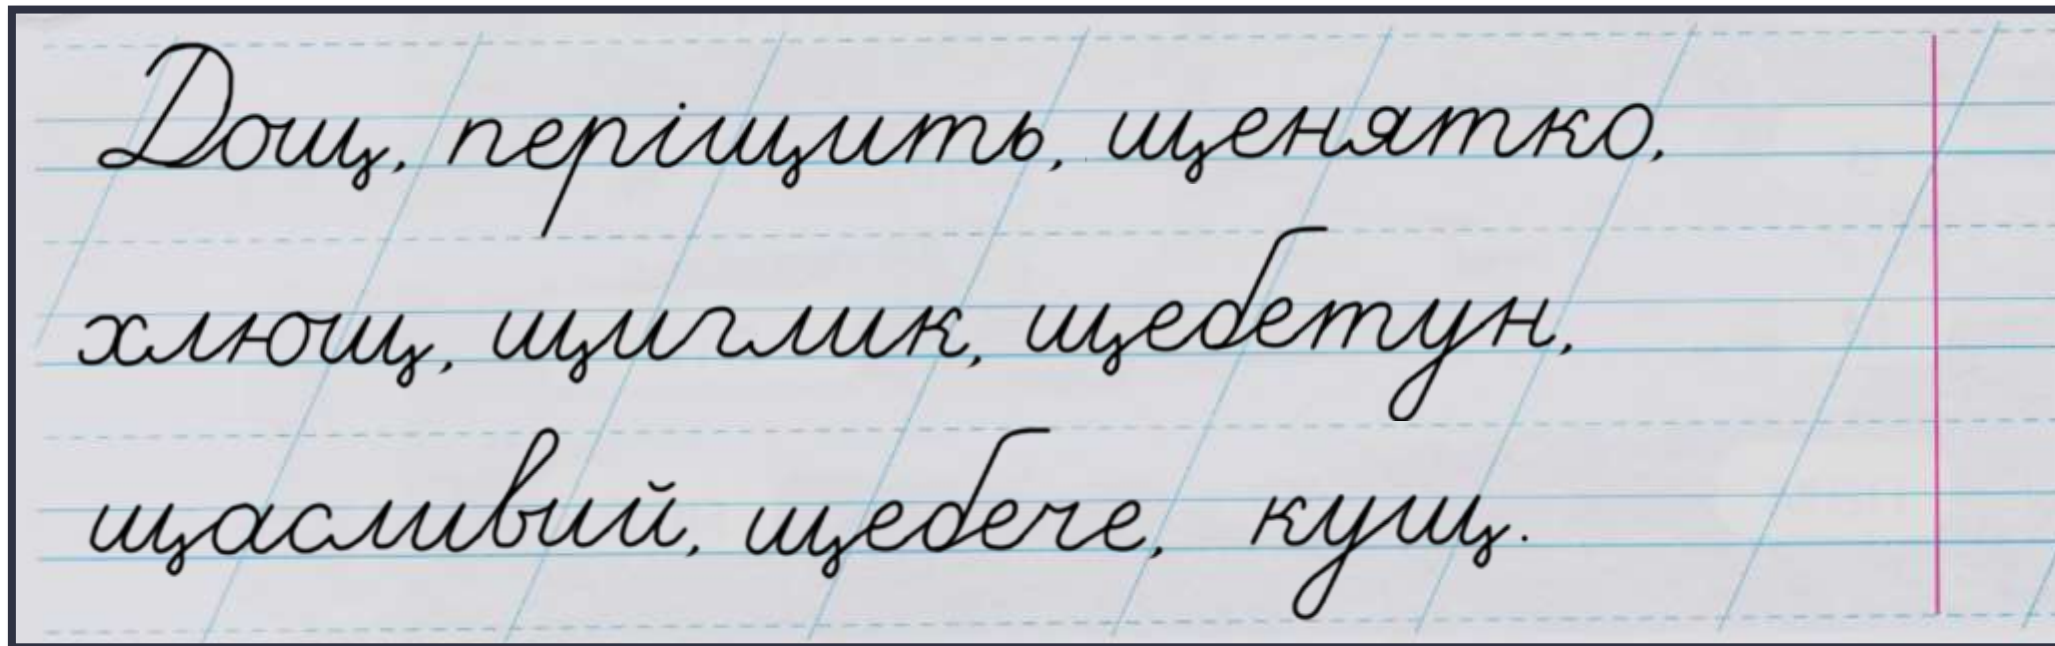 Дощ, періщить, щенятко,
хлющ, щиглик, щебетун,
щасливий, щебече, кущ.